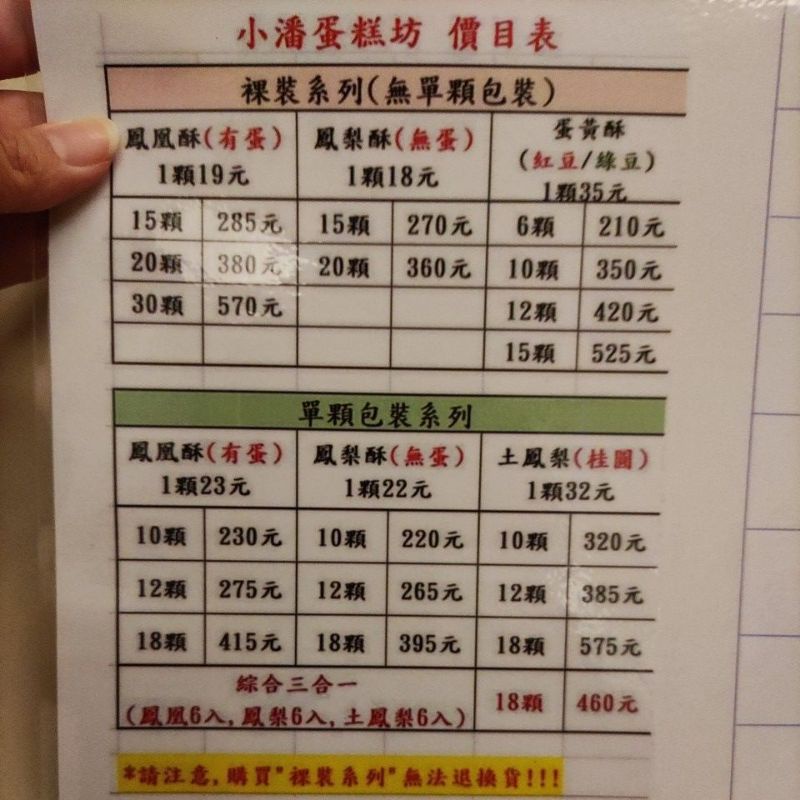 小潘蛋糕坊 價目表
裸裝系列(無單顆包裝)
鳳凰酥(有蛋) 鳳梨酥(無蛋) 蛋黃酥
(紅豆/綠豆)
1顆19元 1顆18元 1顆35元
15顆 285元 15顆 270元 6顆 210元
20顆 380元 20顆 360元 10顆 350元
30顆 570元 12顆 420元
15顆 525元
單顆包裝系列
鳳凰酥(有蛋) 鳳梨酥(無蛋) 土鳳梨(桂圓)
1顆23元 1顆22元 1顆32元
10顆 230元 10顆 220元 10顆 320元
12顆 275元 12顆 265元 12顆 385元
18顆 415元 18顆 395元 18顆 575元
綜合三合一
(鳳凰6入,鳳梨6入,土鳳梨6入) 18顆 460元
*請注意,購買"裸裝系列"無法退換貨!!!